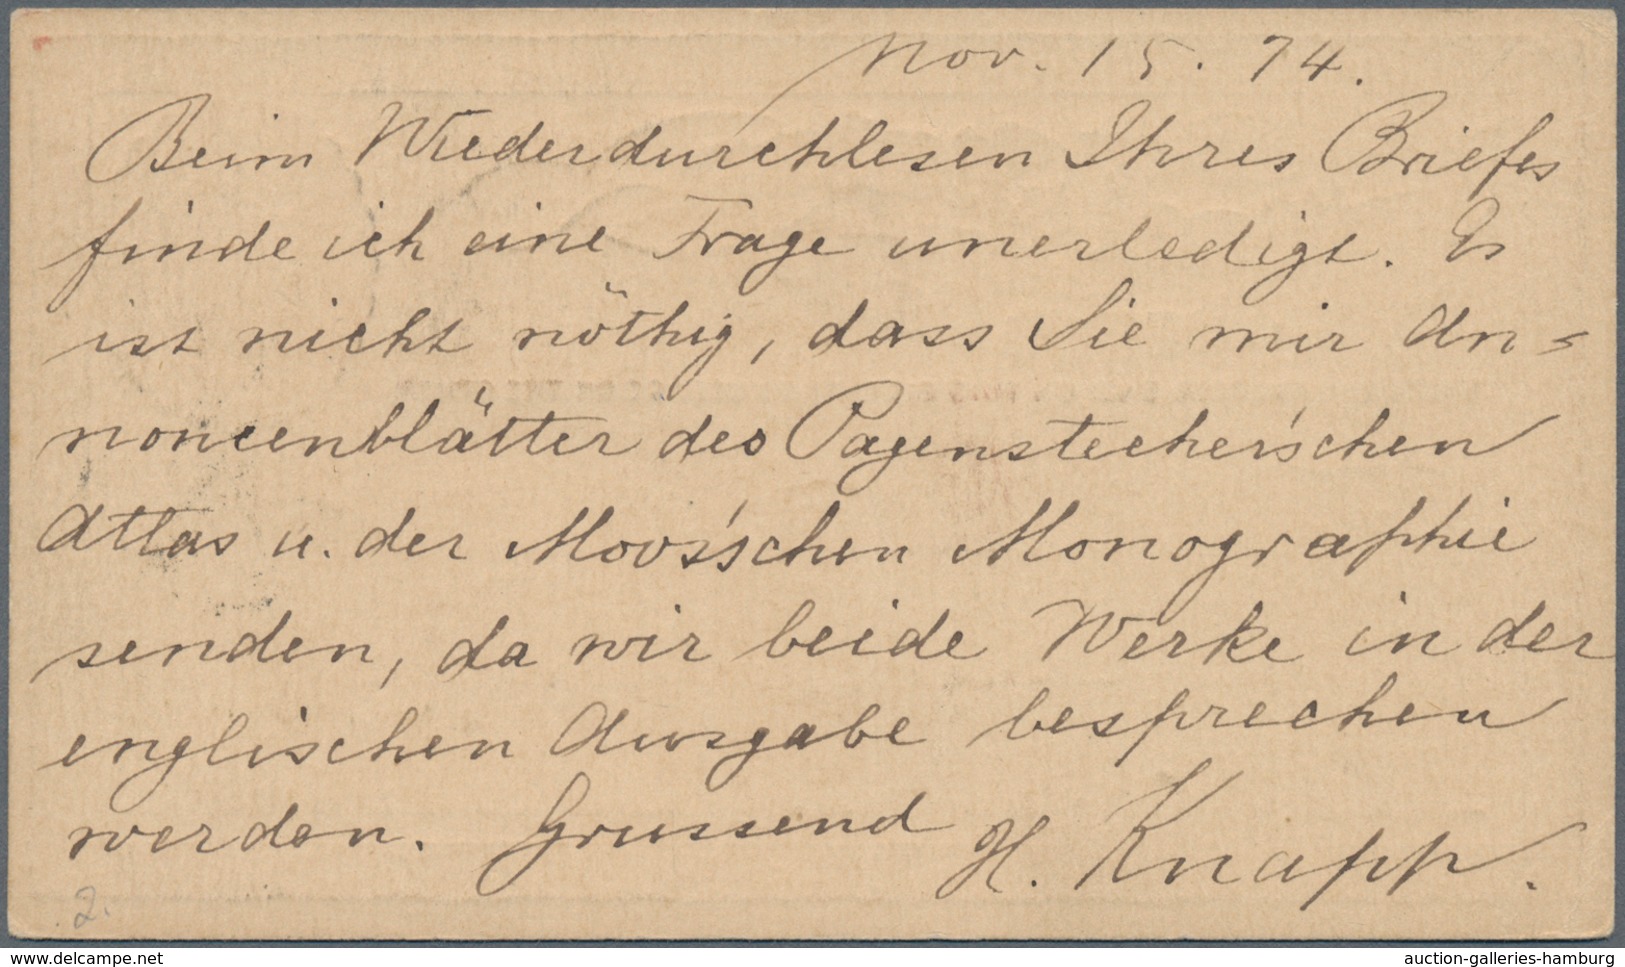 Nov. 15. 74.
Beim Wiederdurchlesen Ihres Briefes
finde ich eine Frage unerledigt. Es
ist nicht nöthig, dass Sie mir An=
noncenblätter des Pagenstecher'schen
Atlas u. der Moos'schen Monographie
senden, da wir beide Werke in der
englischen Ausgabe besprechen
werden. Grussend H. Knapp.
2.
www.delcampe.net
auction-galleries-hamburg